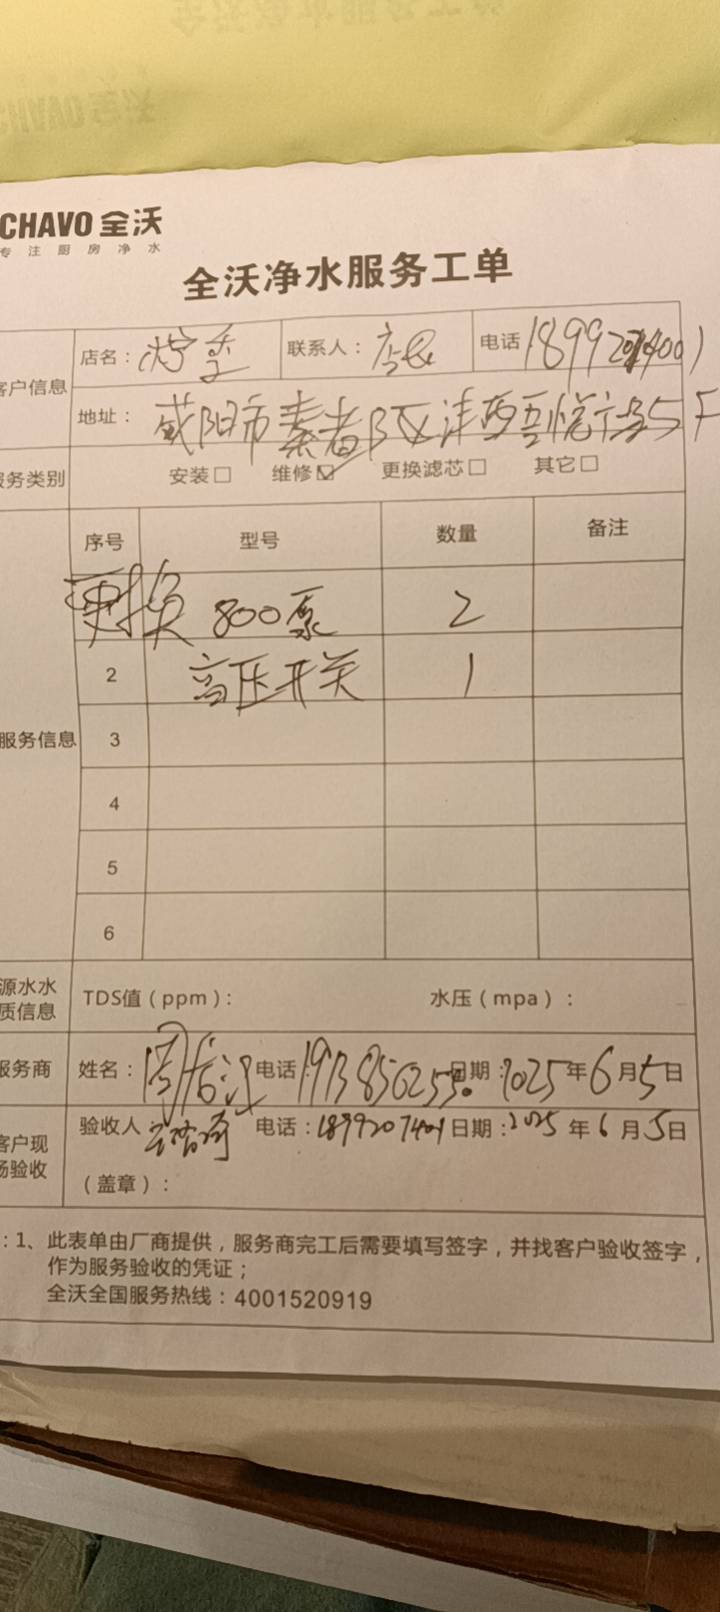 CHAVO 全沃
专注厨房净水
全沃净水服务工单
客户信息
店名： 柠季 联系人： 店长 电话
地址： 咸阳市秦都区沣西吾悦广场5F
服务类别 安装□ 维修☑ 更换滤芯□ 其它□
序号 型号 数量 备注
更换 800泵 2
2 高压开关 1
服务信息 3
4
5
6
源水水质信息 TDS值（ppm）： 水压（mpa）：
服务商 姓名： 周 电话 日期：2025年6月5日
客户现场验收 验收人 电话：18992074001 日期：2025年6月5日
（盖章）：
：1、此表单由厂商提供，服务商完工后需要填写签字，并找客户验收签字，
作为服务验收的凭证；
全沃全国服务热线：4001520919